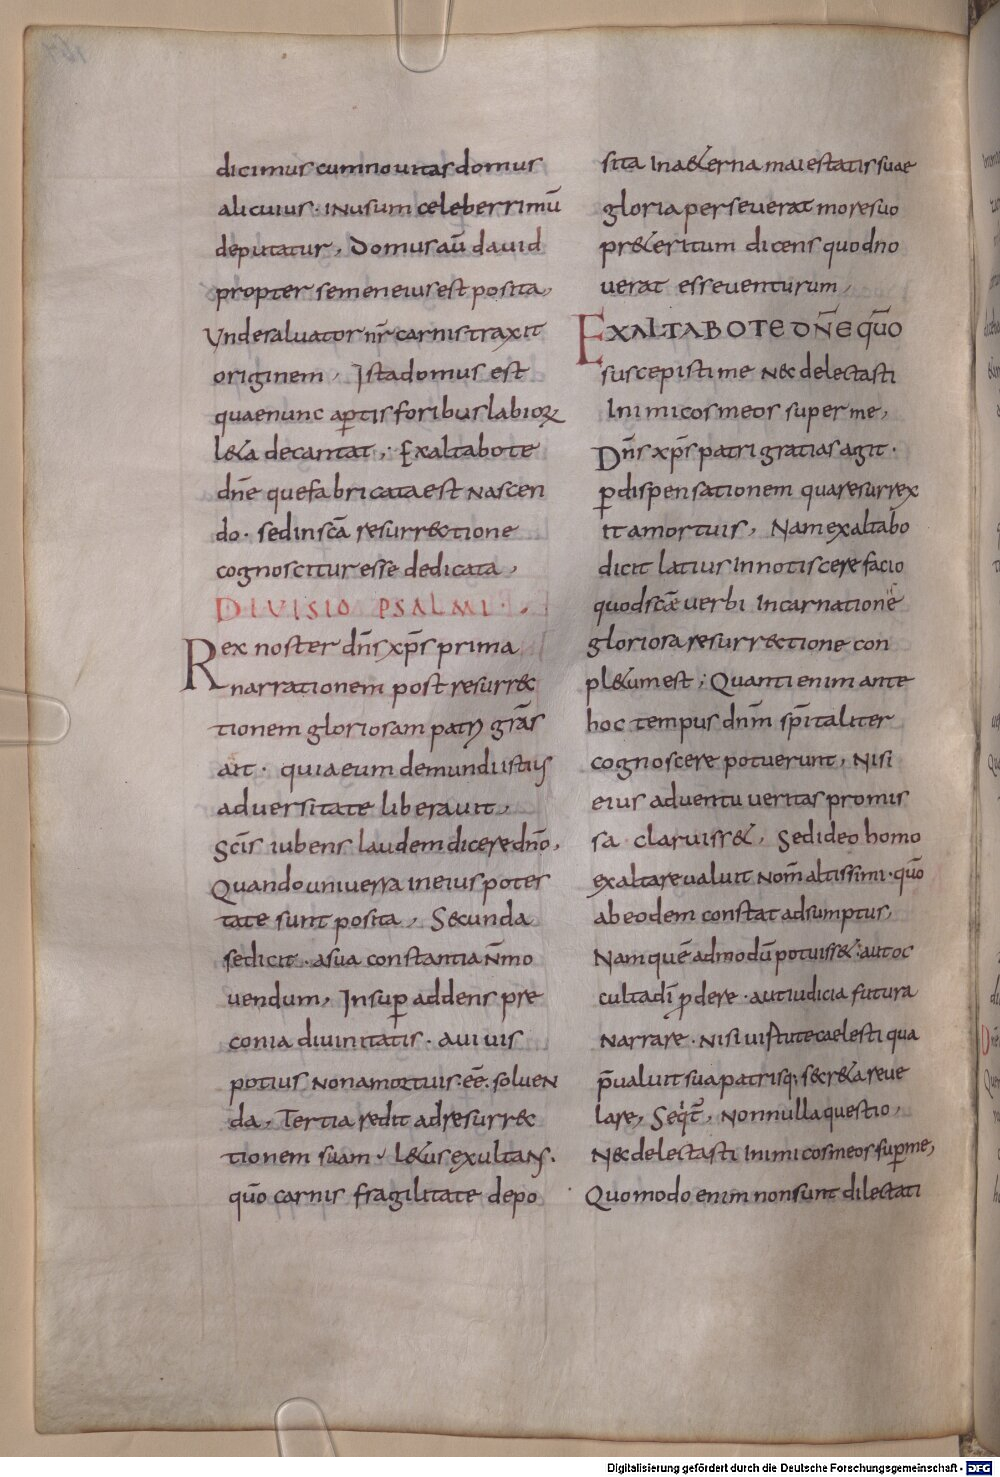 dicimus cum novitas domus
alicuius · inusum celeberrimū
deputatur, Domus aū david
propter semen eius est posita,
Unde salvator nr̄ carnis traxit
originem, Ista domus est
quae nunc aꝑtis foribus labioꝝ
l&a decantat,· Exaltabo te
dn̄e que fabricata est nascen
do · sed in sc̄a resurrectione
cognoscitur esse dedicata,
DIVISIO PSALMI ·,
Rex noster dn̄s xp̄s prima
narrationem post resurrec
tionem gloriosam patri grā̄s
ait · quia eum de mundi istius
adversitate liberavit,
Scīs iubens laudem dicere dn̄o,
Quando universa in eius potes
tate sunt posita, Secunda
se dicit · a sua constantia n̄ mo
vendum, Insuꝑ addens pre
conia divinitatis · a vivis
potius non a mortuis · eē · solven
da, Tertia redit ad resurrec
tionem suam · l&us exultans.
qūo carnis fragilitate depo
sita In a&erna maiestatis suae
gloria perseverat more suo
pr&eritum dicens quod no
verat esse venturum,
EXALTABO TE DN̄E QŪO
suscepisti me nec delectasti
Inimicos meos super me,
Dn̄s xp̄s patri gratias agit ·
ꝑ dispensationem qua resurrex
it a mortuis, Nam exaltabo
dicit latius Innotiscere facio
quod scǣ verbi Incarnatione
gloriosa resurrectione con
pl&um est; Quanti enim ante
hoc tempus dn̄m sp̄italiter
cognoscere potuerunt, Nisi
eius adventu veritas promis
sa claruiss&, Sed ideo homo
exaltare valuit nom̄ altissimi · qūo
ab eodem constat adsumptus,
Nam quē admodū potuiss& · aut oc
culta dī ꝓdere · aut iudicia futura
narrare · nisi vistute caelesti qua
p̄valuit sua patrisq; secr&a reve
lare, Seqit̄, Non nulla questio,
Nec delectasti Inimicos meos suꝑ me,
Quomodo enim non sunt dilectati
Digitalisierung gefördert durch die Deutsche Forschungsgemeinschaft - DFG